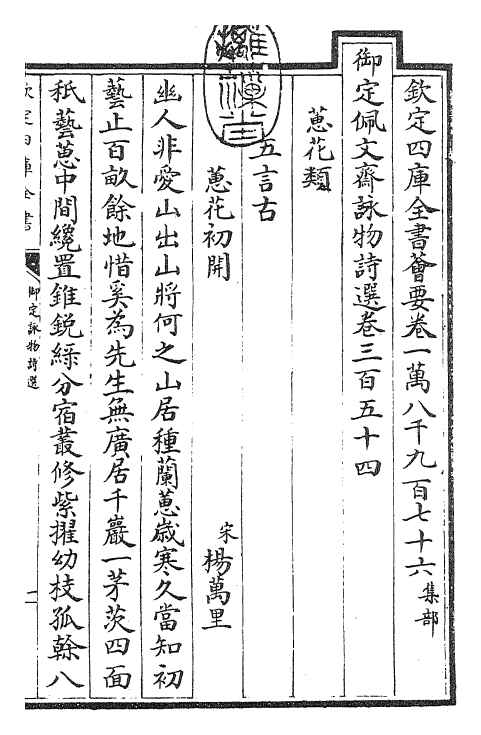 欽定四庫全書薈要卷一萬八千九百七十六集部
御定佩文齋詠物詩選卷三百五十四
蕙花類
五言古
蕙花初開 宋楊萬里
幽人非愛山出山將何之山居種蘭蕙歳寒久當知初
藝止百畝餘地惜奚為先生無廣居千巖一茅茨四面
秖藝蕙中間纔置錐鋭綠分宿叢修紫擢幼枝孤榦八
欽定四庫全書
御定詠物詩選
一